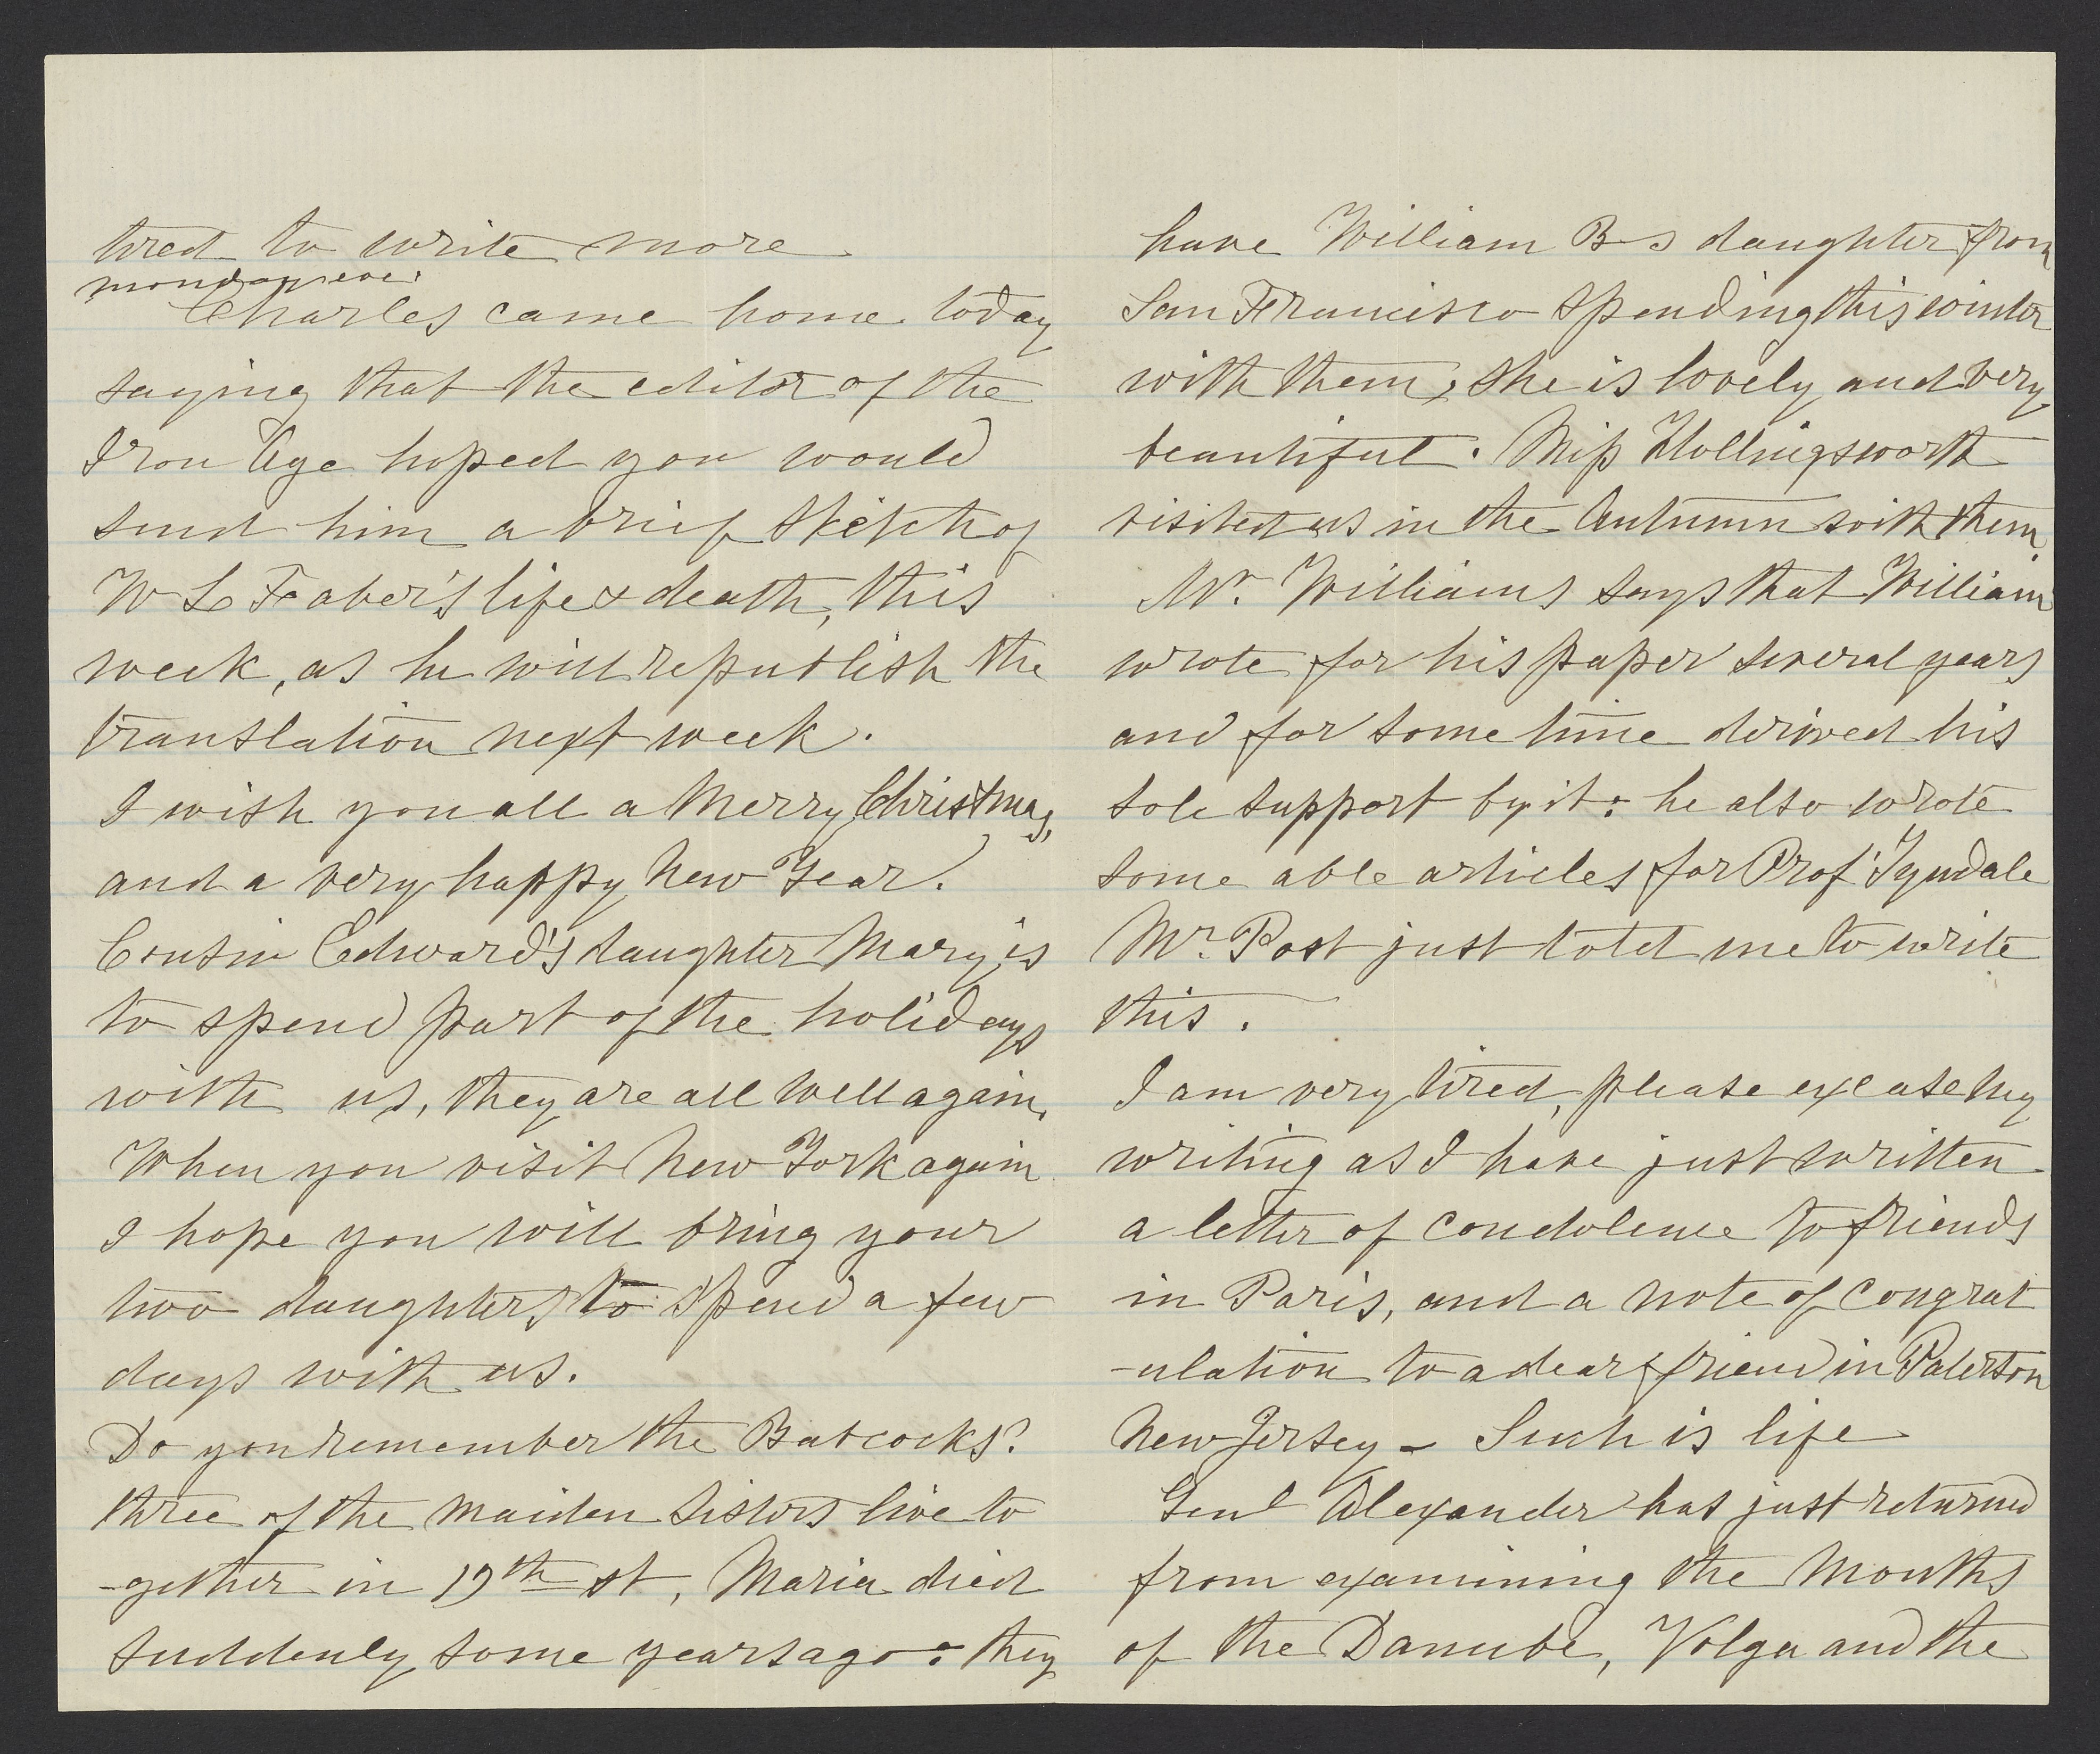 tired to write more
monday eve.
Charles came home today
saying that the editor of the
Iron Age hoped you would
send him a brief sketch of
W L Faber's life & death, this
week, as he will republish the
translation next week.
I wish you all a Merry Christmas,
and a very happy New Year.
Cousin Edward's daughter Mary is
to spend part of the holidays
with us, they are all well again.
When you visit New York again
I hope you will bring your
two daughters to spend a few
days with us.
Do you remember the Babcocks?
three of the maiden sisters live to
-gether in 19th st, Maria died
suddenly some years ago: they
have William B-s daughter from
San Francisco spending this winter
with them, she is lovely and very
beautiful. Miss Hollingsworth
visited us in the Autumn with them.
Mr. Williams says that William
wrote for his paper several years
and for some time derived his
sole support by it: he also wrote
some able articles for Prof Tyndale
Mr. Post just told me to write
this.
I am very tired, please excuse my
writing as I have just written
a letter of condolence to friends
in Paris, and a note of congrat
-ulation to a dear friend in Paterson
New Jersey - Such is life
Genl Alexander has just returned
from examining the Mouths
of the Danube, Volga and the